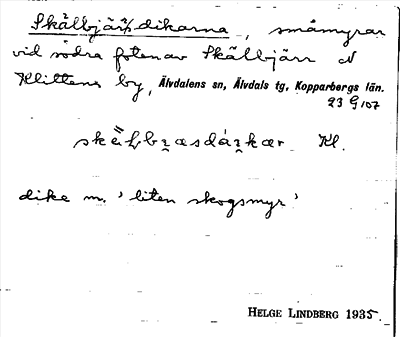 Skälbjärs/dikarna, småmyrar
vid södra foten av Skälbjärr N
Klittens by, Älvdalens sn, Älvdals tg, Kopparbergs län.
23 G 107
Kl.
dike m. 'liten skogsmyr'
HELGE LINDBERG 1935.